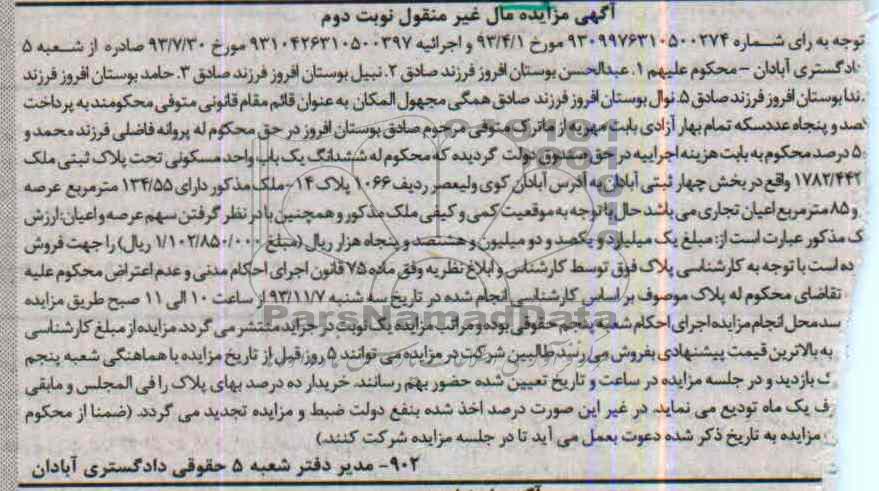 آگهی مزایده مال غیر منقول نوبت دوم
توجه به رای شماره ۹۳۰۹۹۷۶۳۱۰۵۰۰۲۷۴ مورخ ۹۳/۴/۱ و اجرائیه ۹۳۱۰۴۲۶۳۱۰۵۰۰۳۹۷ مورخ ۹۳/۷/۳۰ صادره از شعبه ۵
دادگستری آبادان - محکوم علیهم ۱. عبدالحسن بوستان افروز فرزند صادق ۲. نبیل بوستان افروز فرزند صادق ۳. حامد بوستان افروز فرزند
ندا بوستان افروز فرزند صادق ۵. نوال بوستان افروز فرزند صادق همگی مجهول المکان به عنوان قائم مقام قانونی متوفی محکومند به پرداخت
صد و پنجاه عدد سکه تمام بهار آزادی بابت مهریه از ماترک متوفی مرحوم صادق بوستان افروز در حق محکوم له پروانه فاضلی فرزند محمد و
۵ درصد محکوم به بابت هزینه اجراییه در حق صندوق دولت گردیده که محکوم له ششدانگ یک باب واحد مسکونی تحت پلاک ثبتی ملک
۱۷۸۲/۴۴۲ واقع در بخش چهار ثبتی آبادان به آدرس آبادان کوی ولیعصر ردیف ۱۰۶۶ پلاک ۱۴ - ملک مذکور دارای ۱۳۴/۵۵ مترمربع عرصه
و ۸۵ متر مربع اعیان تجاری می باشد حال با توجه به موقعیت کمی و کیفی ملک مذکور و همچنین با در نظر گرفتن سهم عرصه و اعیان: ارزش
ک مذکور عبارت است از: مبلغ یک میلیارد و یکصد و دو میلیون و هشتصد و پنجاه هزار ریال (مبلغ ۱/۱۰۲/۸۵۰/۰۰۰ ریال) را جهت فروش
ده است با توجه به کارشناسی پلاک فوق توسط کارشناس و ابلاغ نظریه وفق ماده ۷۵ قانون اجرای احکام مدنی و عدم اعتراض محکوم علیه
تقاضای محکوم له پلاک موصوف بر اساس کارشناسی انجام شده در تاریخ سه شنبه ۹۳/۱۱/۷ از ساعت ۱۰ الی ۱۱ صبح طریق مزایده
سد محل انجام مزایده اجرای احکام شعبه پنجم حقوقی بوده و مراتب مزایده یک نوبت در جراید منتشر می گردد. مزایده از مبلغ کارشناسی
به بالاترین قیمت پیشنهادی بفروش می رسد طالبین شرکت در مزایده می توانند ۵ روز قبل از تاریخ مزایده با هماهنگی شعبه پنجم
ک بازدید و در جلسه مزایده در ساعت و تاریخ تعیین شده حضور بهم رسانند. خریدار ده درصد بهای پلاک را فی المجلس و مابقی
رف یک ماه تودیع می نماید. در غیر این صورت درصد اخذ شده بنفع دولت ضبط و مزایده تجدید می گردد. (ضمنا از محکوم
مزایده به تاریخ ذکر شده دعوت بعمل می آید تا در جلسه مزایده شرکت کنند.)
۹۰۲- مدیر دفتر شعبه ۵ حقوقی دادگستری آبادان
ParsNamadData